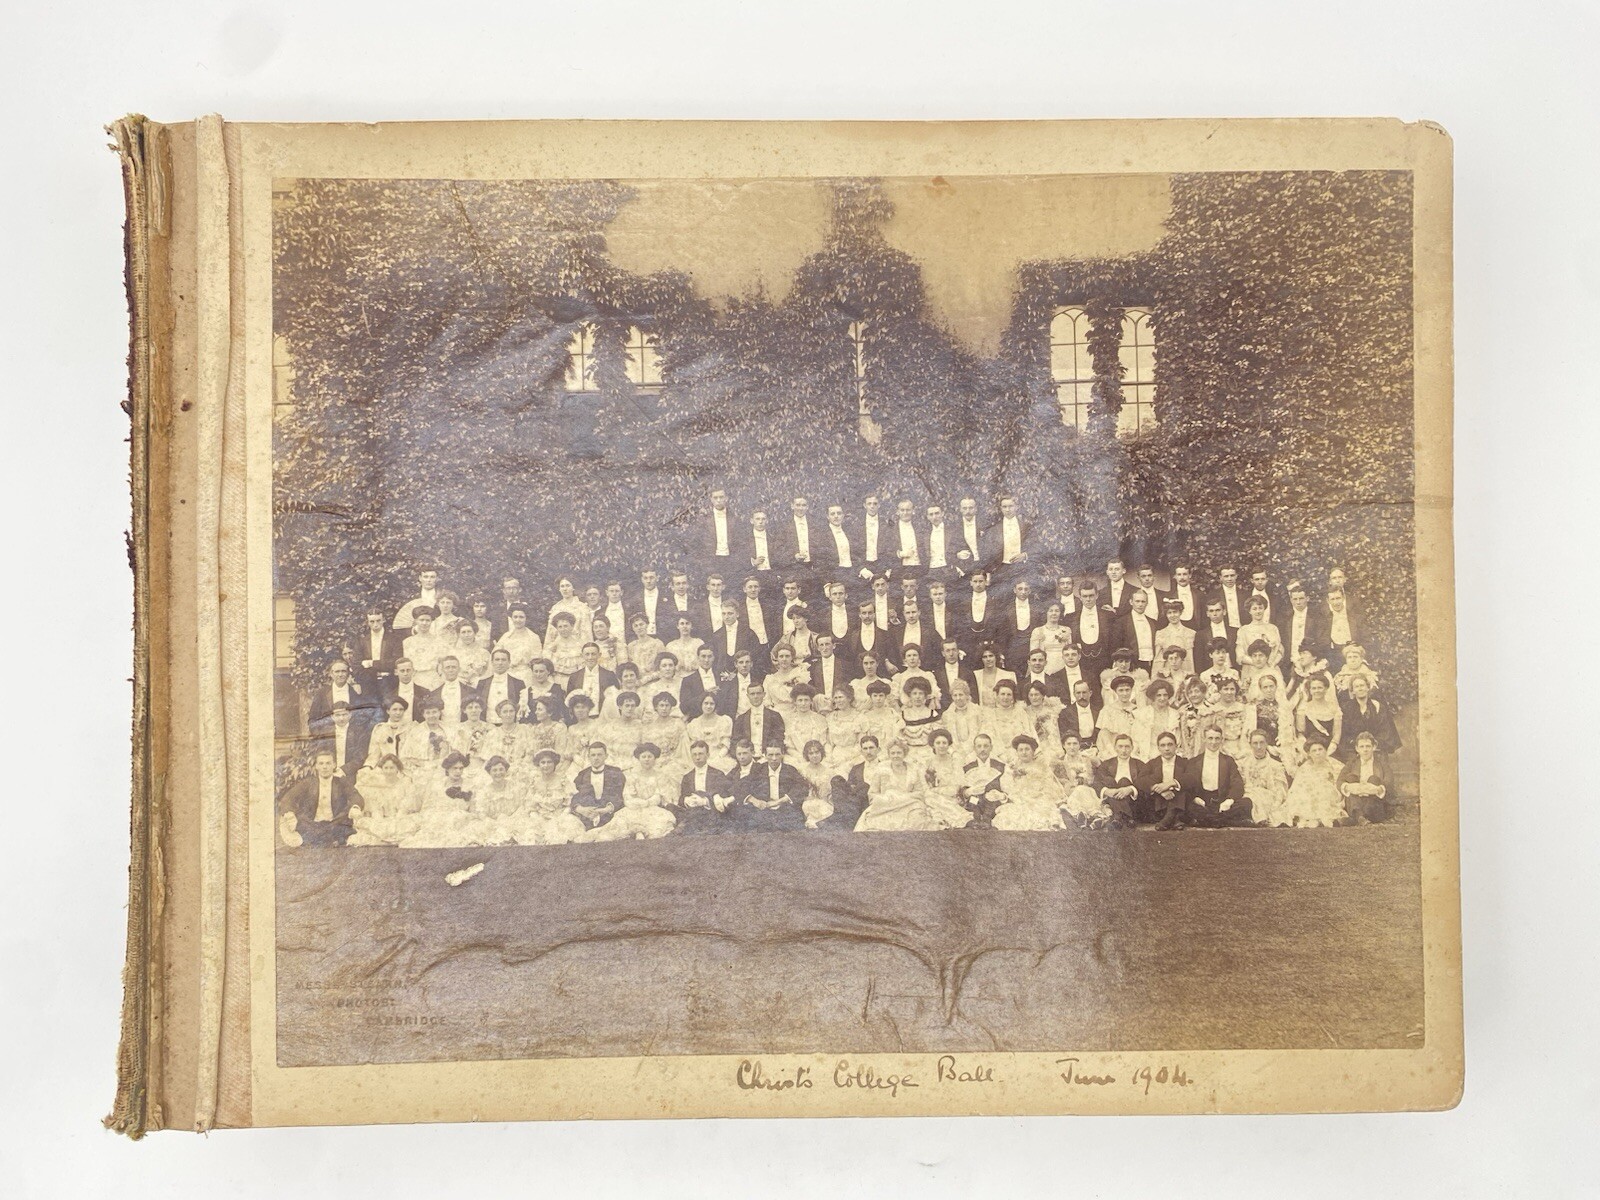 PHOTOS:
CAMBRIDGE
Christ's College Ball. June 1904.